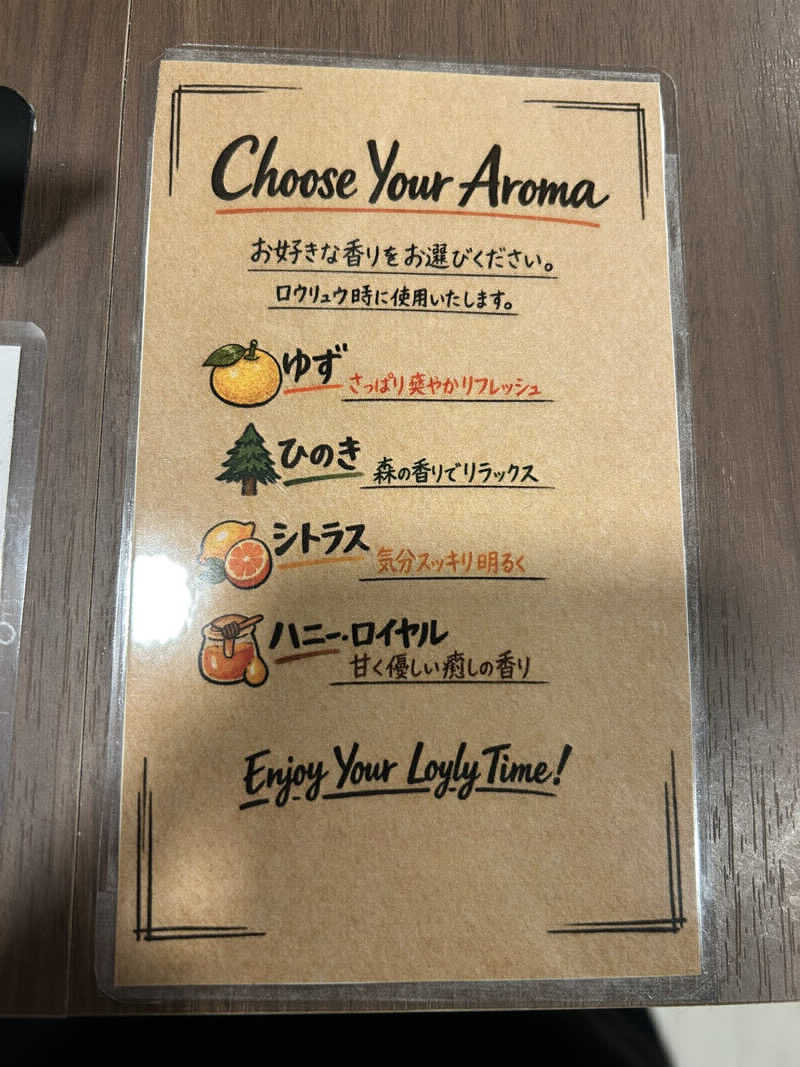 Choose Your Aroma
お好きな香りをお選びください。
ロウリュウ時に使用いたします。
ゆず
さっぱり爽やかリフレッシュ
ひのき
森の香りでリラックス
シトラス
気分スッキリ明るく
ハニー・ロイヤル
甘く優しい癒しの香り
Enjoy Your Loyly Time!